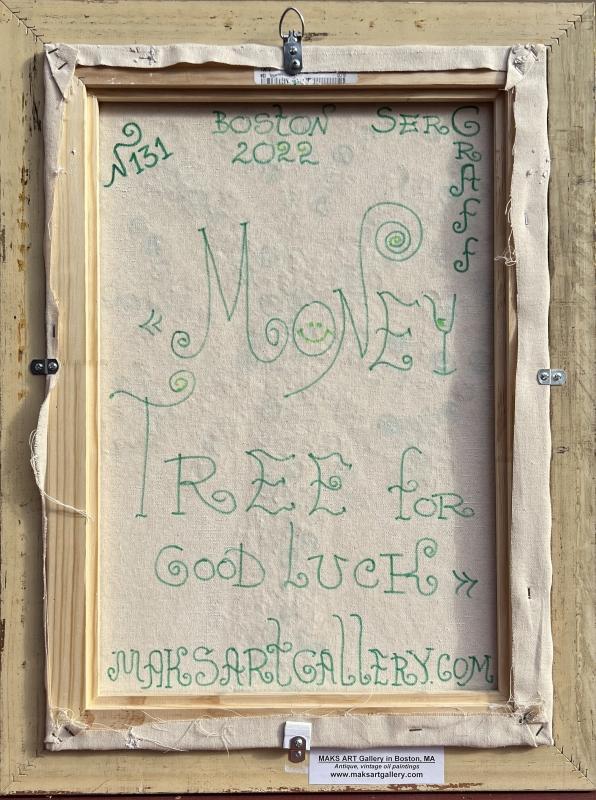 BOSTON SERGRAFF
N131 2022
« MONEY
TREE FOR
GOOD LUCK »
MAKSARTGALLERY.COM
MAKS ART Gallery in Boston, MA
Antique, vintage oil paintings
www.maksartgallery.com